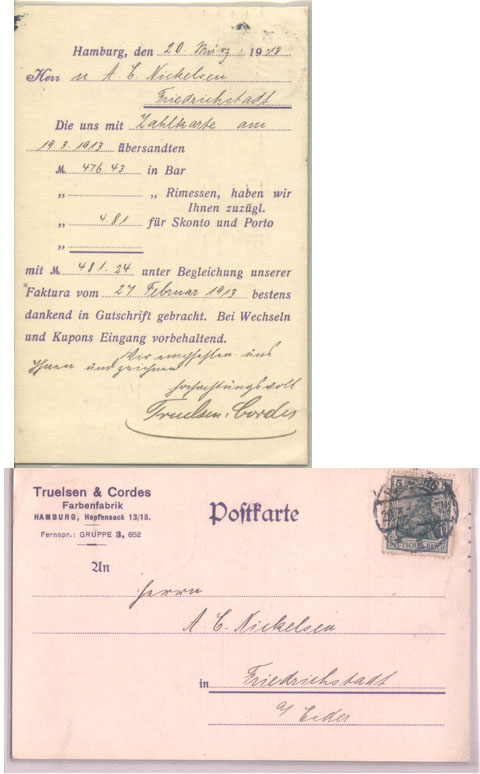 Hamburg, den 20 März 1913
Herrn A. C. Nickelsen
Friedrichstadt
Die uns mit Zahlkarte am
19.3.1913 übersandten
M. 476.43 in Bar
„ „ Rimessen, haben wir
Ihnen zuzügl.
„ 4.81 für Skonto und Porto
„
mit M. 481.24 unter Begleichung unserer
Faktura vom 27 Februar 1913 bestens
dankend in Gutschrift gebracht. Bei Wechseln
und Kupons Eingang vorbehaltend.
Wir empfehlen uns
Ihnen und zeichnen
hochachtungsvoll
Truelsen & Cordes
Truelsen & Cordes
Farbenfabrik
HAMBURG, Hopfensack 13/15.
Fernspr.: GRUPPE 3, 652
Postkarte
An
Herrn
A. C. Nickelsen
in Friedrichstadt
a/ Eider
5 5
DEUTSCHES REICH